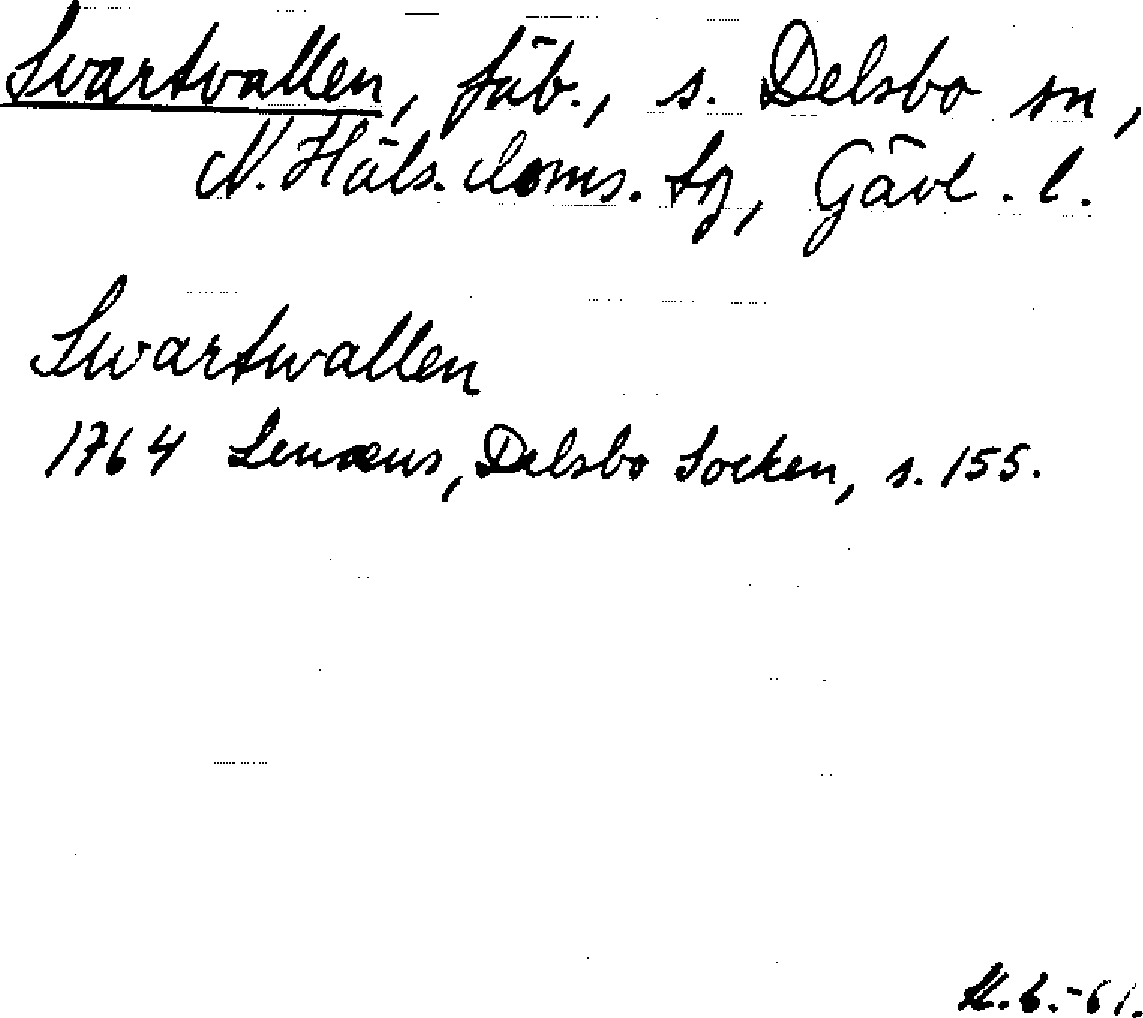 Svartvallen, fäb., s. Delsbo sn,
N. Häls. doms. tg, Gävl. l.
Swartwallen
1764 Lenæus, Delsbo Socken, s. 155.
St. B. -61.